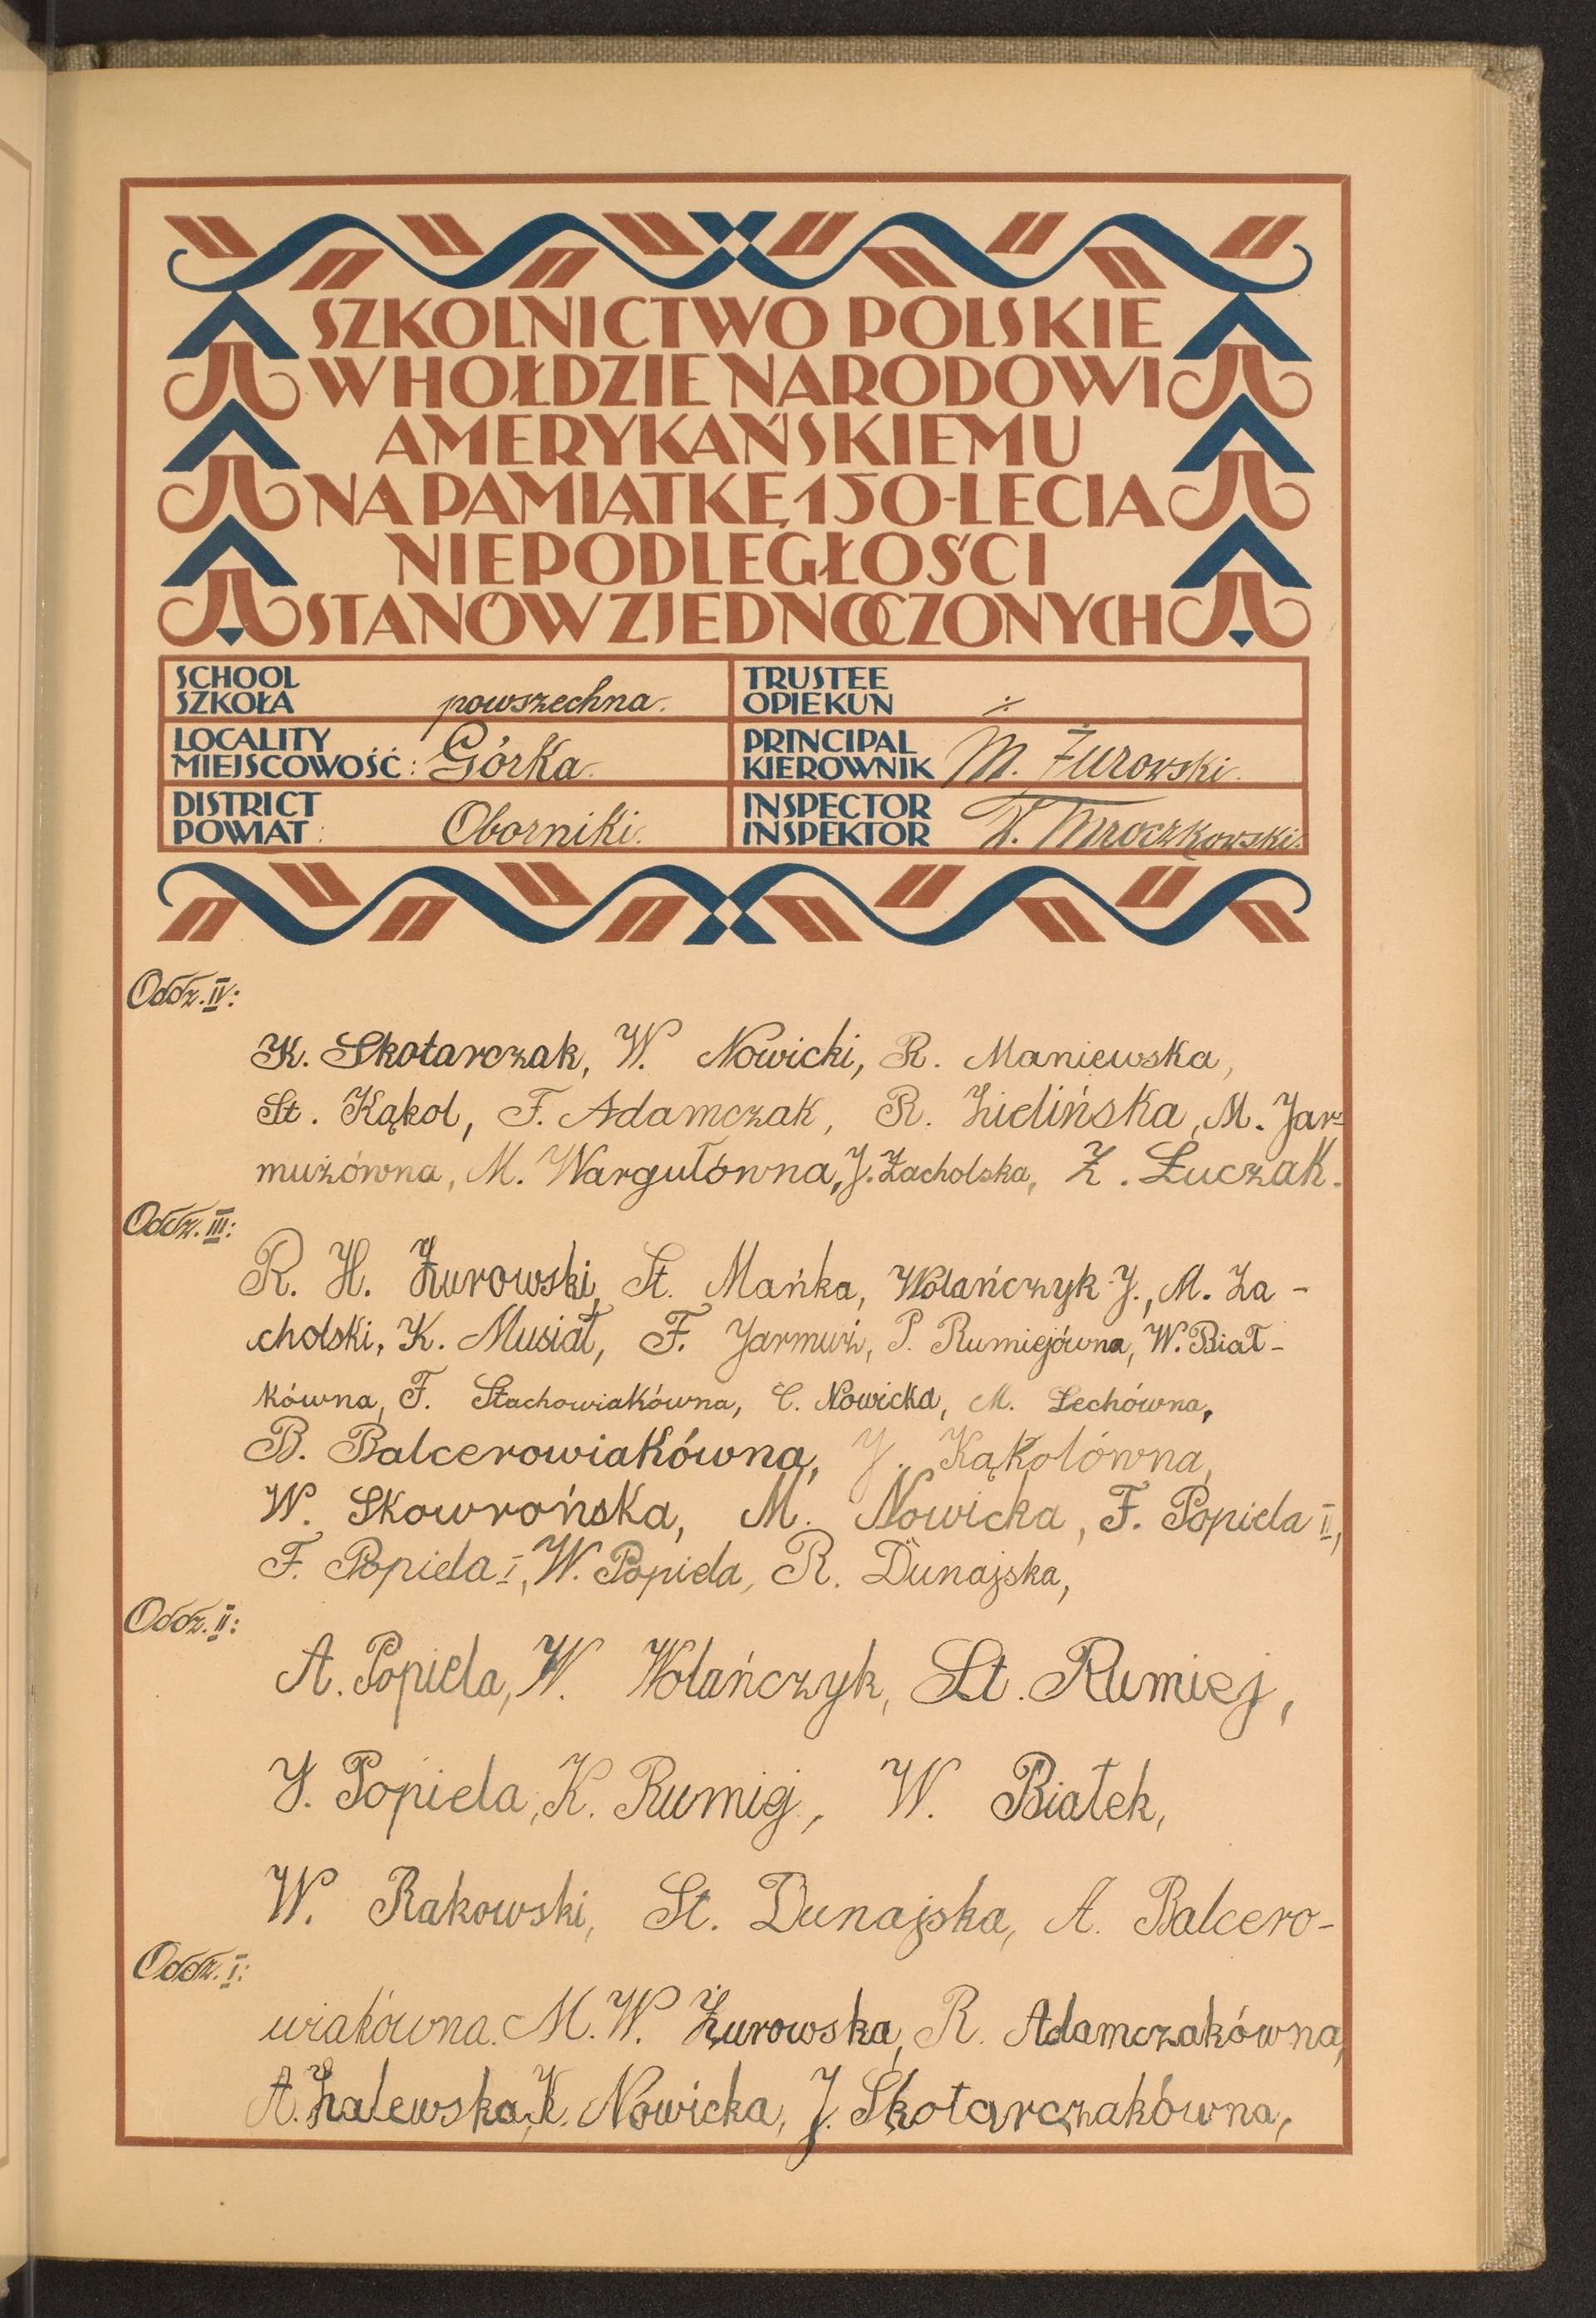 SZKOLNICTWO POLSKIE
W HOŁDZIE NARODOWI
AMERYKAŃSKIEMU
NA PAMIĄTKĘ 150-LECIA
NIEPODLEGŁOŚCI
STANÓW ZJEDNOCZONYCH
SCHOOL
SZKOŁA powszechna.
TRUSTEE
OPIEKUN ÷
LOCALITY
MIEJSCOWOŚĆ: Górka.
PRINCIPAL
KIEROWNIK M. Żurowski.
DISTRICT
POWIAT: Oborniki.
INSPECTOR
INSPEKTOR Mroczkowski.
Oddz. IV:
K. Skotarczak, W. Nowicki, R. Maniewska,
St. Kąkol, F. Adamczak, R. Zielińska, M. Jar=
mużówna, M. Wargułówna, J. Zacholska, Z. Łuczak.
Oddz. III:
R. H. Żurowski, St. Mańka, Wolańczyk J., M. Za-
cholski, K. Musiał, F. Jarmuż, P. Rumiejówna, W. Biał-
kówna, F. Stachowiakówna, C. Nowicka, M. Lechówna,
B. Balcerowiakówna, J. Kąkolówna,
W. Skowrońska, M. Nowicka, F. Popiela II,
F. Popiela I, W. Popiela, R. Dunajska,
Oddz. II:
A. Popiela, W. Wolańczyk, St. Rumiej,
J. Popiela, K. Rumiej, W. Białek,
W. Rakowski, St. Dunajska, A. Balcero-
Oddz. I:
wiakówna. M. W. Żurowska, R. Adamczakówna,
A. Zalewska, K. Nowicka, J. Skotarczakówna,